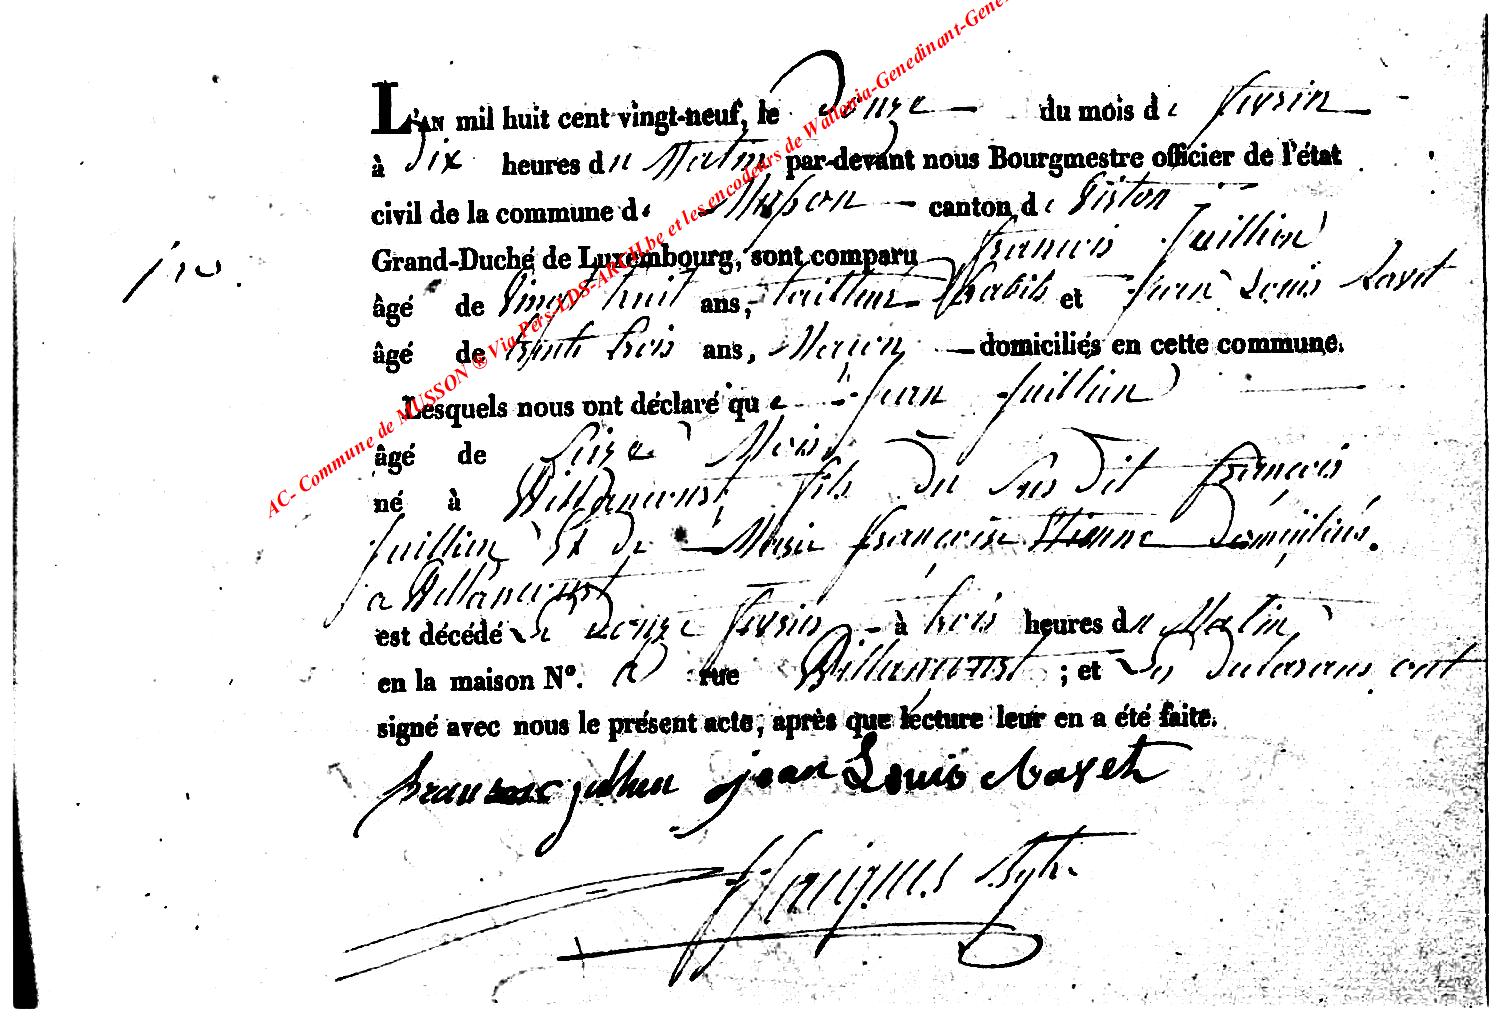 L'AN mil huit cent vingt-neuf, le Douze du mois de fevrier
à Dix heures du Matin par-devant nous Bourgmestre officier de l'état
civil de la commune de Musson canton de Virton
Grand-Duché de Luxembourg, sont comparu François Juillien
âgé de Vingt huit ans, tailleur d'habits et Jean Louis
âgé de trente trois ans, Maçon domiciliés en cette commune.
Lesquels nous ont déclaré que Jean Juillien
âgé de Seize Mois
né à Willancourt fils du Sus dit François
Juillien Et de Marie françoise Etienne Domiciliés.
a Willancourt
est décédé Le Douze fevrier à trois heures du Matin
en la maison No. a rue Willancourt ; et Les Declarans ont
signé avec nous le présent acte, après que lecture leur en a été faite.
francois jullien jean Louis
Jacques
AC- Commune de MUSSON ® Via Pers-LDS-ARCH.be et les encodeurs de Wallonia-Genedinant-Gene